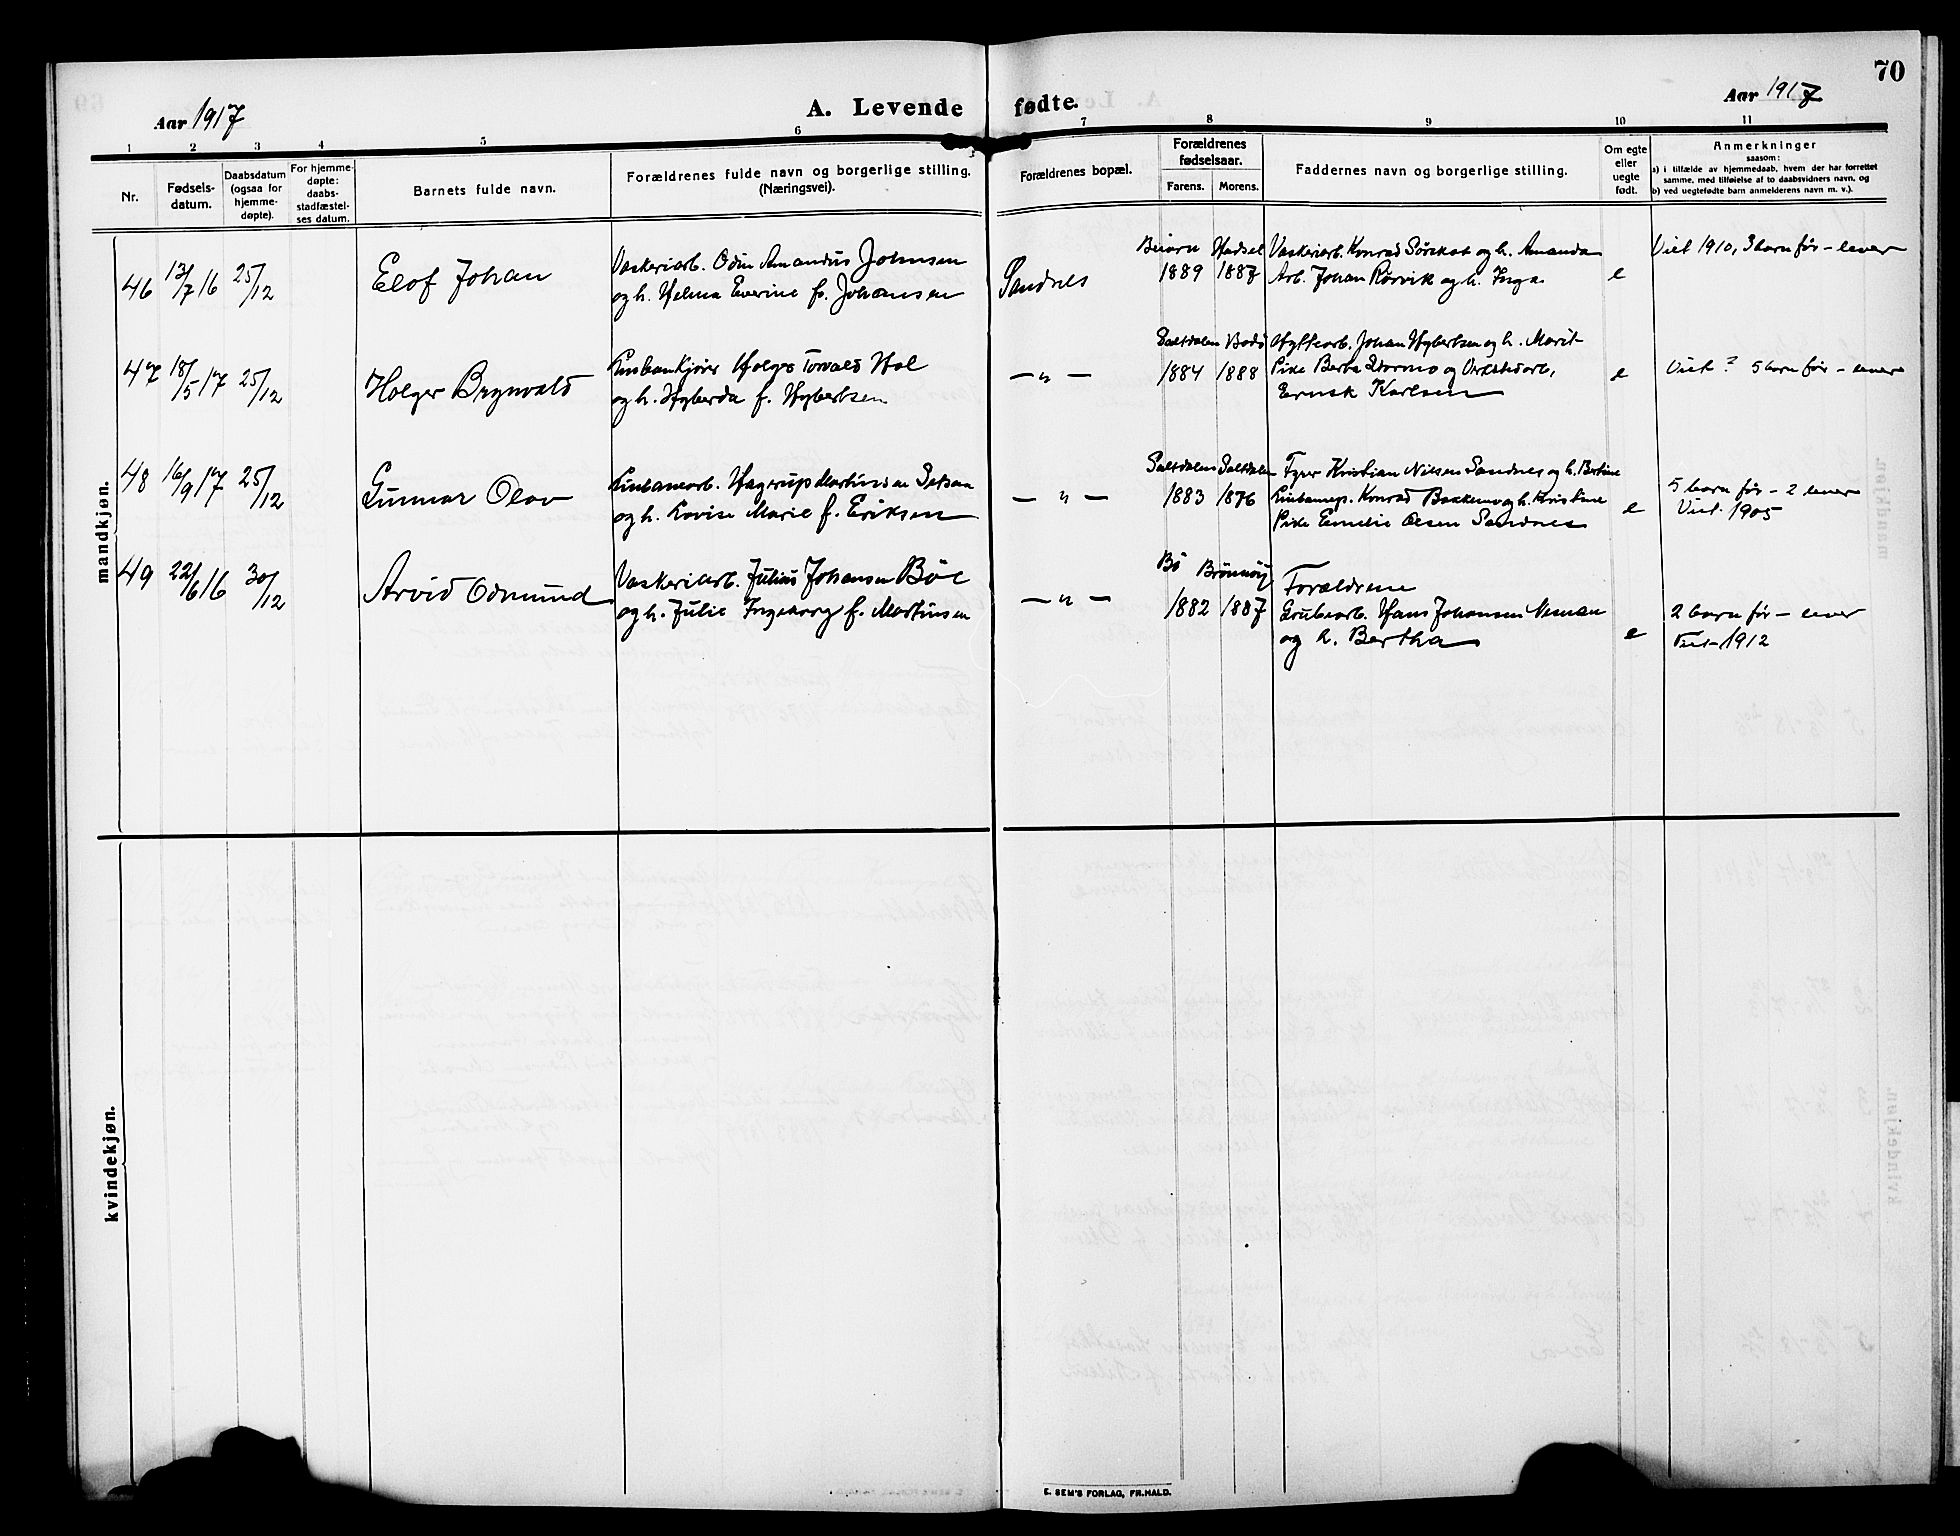 70
Aar 1917
A. Levende fødte.
Aar 1917
1 2 3 4 5 6 7 8 9 10 11
Nr.
Fødsels-
datum.
Daabsdatum
(ogsaa for
hjemme-
døpte).
For hjemme-
døpte:
daabs-
stadfæstel-
ses datum.
Barnets fulde navn.
Forældrenes fulde navn og borgerlige stilling.
(Næringsvei).
Forældrenes bopæl.
Forældrenes
fødselsaar.
Farens. Morens.
Faddernes navn og borgerlige stilling.
Om egte
eller
uegte
født.
Anmerkninger
saasom:
a) i tilfælde av hjemmedaab, hvem der har forrettet
samme, med tilføielse af to daabsvidners navn, og
b) ved uegtefødte barn anmelderens navn m. v.).
mandkjøn.
46 13/7 16 25/12 Elof Johan
Vaskeriarb. Odin Amandus Johnsen
og h. Helma Everine f. Johansen
Sandnes
Beiarn Hadsel
1889 1887
Vaskeriarb. Konrad og h. Amanda
Arb. Johan Rørvik og h. Inga
e
Viet 1910, 3 barn før - lever
47 18/5 17 25/12 Holger Brynvald
Holger Torvald Hol
og h. Hyberda f. Hybertsen
— " —
Saltdalen Bodø
1884 1888
Hyttearb. Johan Hybertsen og h. Marit
Pike Berta Stormo og
Ernst Karlsen
e
Viet ? 5 barn før - lever
48 16/9 17 25/12 Gunnar Olav
Linbanearb. Hagerup Martinsen
og h. Lovise Marie f. Eriksen
— " —
Saltdalen Saltdalen
1883 1876
Fyrer Kristian Nilsen Sandnes og h. Bertine
Konrad Bakkemo og h. Kristine
Pike Emelie Olsen Sandnes
e
5 barn før - 2 lever
Viet 1905
49 22/6 16 30/12 Arvid Odmund
Vaskeriarb. Julius Johansen Bøe
og h. Julie Ingeborg f. Martinsen
— " —
Bø Brønnøy
1882 1887
Forældrene
Grubearb. Hans Johansen
og h. Bertha
e
2 barn før - lever
Viet 1912
kvindekjøn.
E. SEM'S FORLAG, FR.HALD.